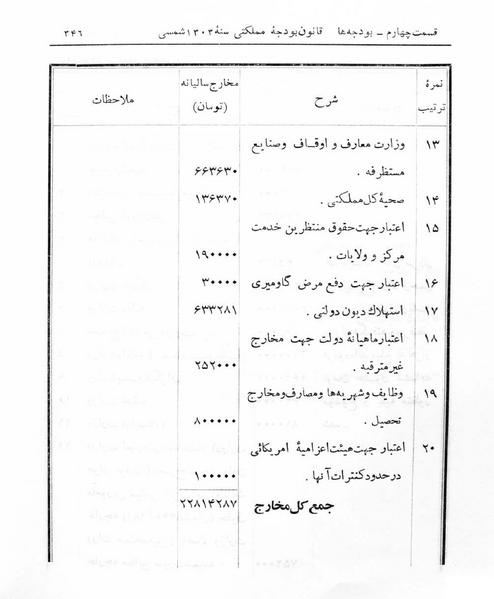 قسمت چهارم ـ بودجه‌ها قانون بودجهٔ مملکتی سنهٔ ۱۳۰۳ شمسی ۳۴۶
نمرهٔ ترتیب شرح مخارج سالیانه (تومان) ملاحظات
۱۳ وزارت معارف و اوقاف وصنایع
مستظرفه . ۶۶۳۶۳۰
۱۴ صحیهٔ کل مملکتی . ۱۳۶۳۷۰
۱۵ اعتبار جهت حقوق منتظرین خدمت
مرکز و ولایات . ۱۹۰۰۰۰
۱۶ اعتبار جهت دفع مرض گاومیری ۳۰۰۰۰
۱۷ استهلاك دیون دولتی . ۶۳۳۲۸۱
۱۸ اعتبار ماهیانهٔ دولت جهت مخارج
غیر مترقبه . ۲۵۲۰۰۰
۱۹ وظایف وشهریه‌ها ومصارف ومخارج
تحصیل . ۸۰۰۰۰۰
۲۰ اعتبار جهت هیئت اعزامیهٔ امریکائی
در حدود کنترات آنها . ۱۰۰۰۰۰
جمع کل مخارج ۲۲۸۱۴۲۸۷